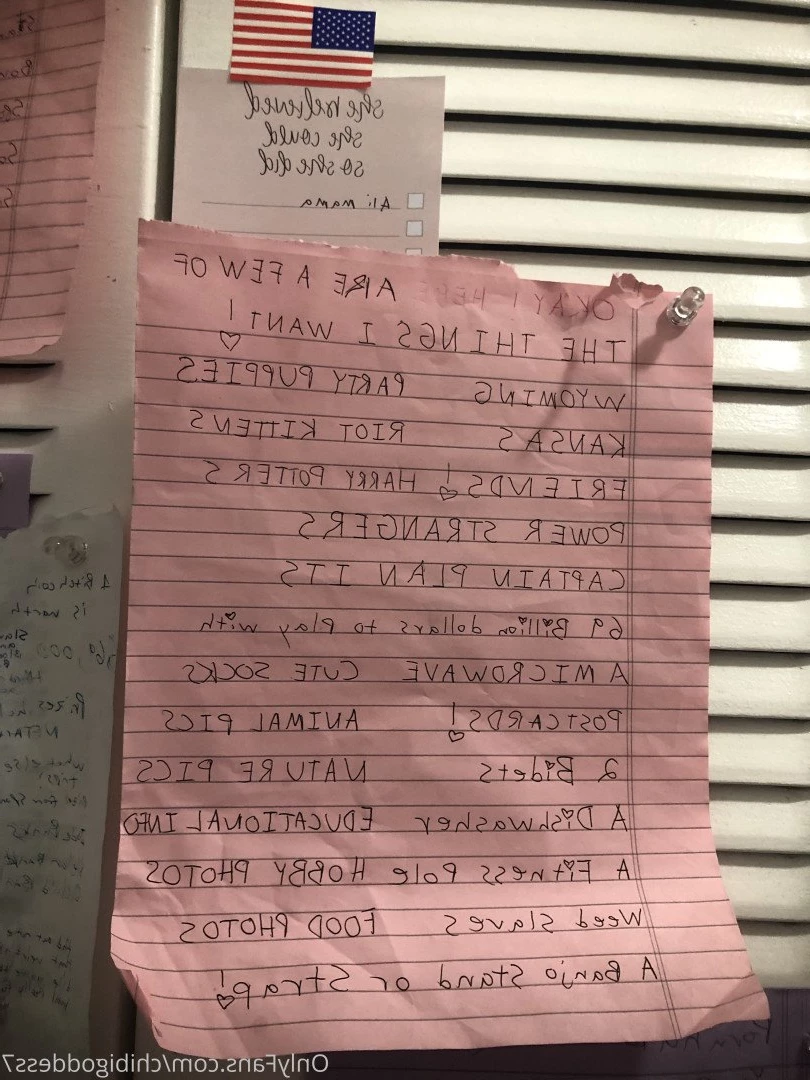 she believed
she could
so she did
Ali mama
OKAY! HERE ARE A FEW OF
THE THINGS I WANT!
WYOMING PARTY PUPPIES
KANSAS RIOT KITTENS
FRIENDS! HARRY POTTERS
POWER STRANGERS
CAPTAIN PLAN ITS
69 Billion dollars to play with
A MICROWAVE CUTE SOCKS
POSTCARDS! ANIMAL PICS
2 Bidets NATURE PICS
A Dishwasher EDUCATIONAL INFO
A Fitness Pole HOBBY PHOTOS
Weed slaves FOOD PHOTOS
A Banjo Stand or Strap!
1 Bitch coin
is worth
what else
OnlyFans.com/chibigoddess7